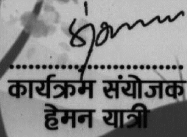 कार्यक्रम संयोजक
हेमन यात्री